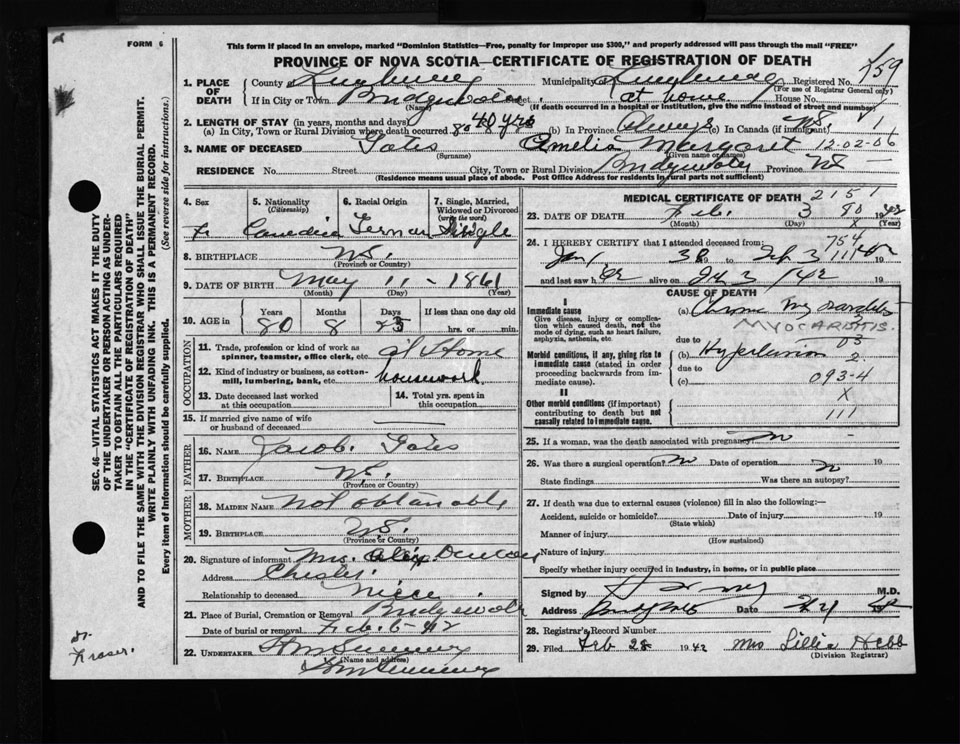 FORM 6
This form if placed in an envelope, marked "Dominion Statistics—Free, penalty for improper use $300," and properly addressed will pass through the mail "FREE"
PROVINCE OF NOVA SCOTIA—CERTIFICATE OF REGISTRATION OF DEATH
1. PLACE OF DEATH County of Lunenburg Municipality Lunenburg Registered No. 759
(For use of Registrar General only)
If in City or Town Bridgewater (Name) St. at home House No. 1
(If death occurred in a hospital or institution, give the name instead of street and number)
2. LENGTH OF STAY (in years, months and days)
(a) In City, Town or Rural Division where death occurred 40 yrs (b) In Province Always (c) In Canada (if immigrant)
3. NAME OF DECEASED Amelia Margaret 12-02-06
(Surname) (Given name or names)
RESIDENCE No. Street City, Town or Rural Division Bridgewater Province NS
(Residence means usual place of abode. Post Office Address for residents in rural parts not sufficient)
4. Sex 5. Nationality (Citizenship) 6. Racial Origin 7. Single, Married, Widowed or Divorced (write the word)
F. Canadian German Single
8. BIRTHPLACE N.S.
(Province or Country)
9. DATE OF BIRTH May 11 - 1861
(Month) (Day) (Year)
10. AGE in Years Months Days If less than one day old
80 8 23 hrs. or min.
OCCUPATION
11. Trade, profession or kind of work as spinner, teamster, office clerk, etc. at Home
12. Kind of industry or business, as cotton-mill, lumbering, bank, etc. housework
13. Date deceased last worked at this occupation 14. Total yrs. spent in this occupation
15. If married give name of wife or husband of deceased
FATHER
16. NAME Jacob
17. BIRTHPLACE N.S.
(Province or Country)
MOTHER
18. MAIDEN NAME Not obtainable
19. BIRTHPLACE N.S.
(Province or Country)
20. Signature of informant Mrs. Alex.
Address Chester
Relationship to deceased Niece
21. Place of Burial, Cremation or Removal Bridgewater
Date of burial or removal Feb. 6-42
22. UNDERTAKER
(Name and address)
MEDICAL CERTIFICATE OF DEATH 2151
23. DATE OF DEATH Feb. 3 90 1942
(Month) (Day) (Year)
24. I HEREBY CERTIFY that I attended deceased from: 754
Jan 38 19 to Feb 3 1942
111
and last saw her alive on Feb 3 1942 19
CAUSE OF DEATH
I
Immediate cause
Give disease, injury, or complication which caused death, not the mode of dying, such as heart failure, asphyxia, asthenia, etc.
(a) Chronic myocarditis
MYOCARDITIS.
due to 03
Morbid conditions, if any, giving rise to immediate cause (stated in order proceeding backwards from immediate cause).
(b) Hypertension 2
due to
(c) 093-4
X
II
Other morbid conditions (if important) contributing to death but not causally related to immediate cause.
111
25. If a woman, was the death associated with pregnancy? no
26. Was there a surgical operation? no Date of operation 19
State findings Was there an autopsy? no
27. If death was due to external causes (violence) fill in also the following:—
Accident, suicide or homicide? Date of injury 19
(State which)
Manner of injury
(How sustained)
Nature of injury
Specify whether injury occurred in industry, in home, or in public place
Signed by M.D.
Address Date 19
28. Registrar's Record Number
29. Filed Feb 28 1942 Mrs Lillia Hebb
(Division Registrar)
SEC. 46—VITAL STATISTICS ACT MAKES IT THE DUTY OF THE UNDERTAKER OR PERSON ACTING AS UNDERTAKER TO OBTAIN ALL THE PARTICULARS REQUIRED IN THE "CERTIFICATE OF REGISTRATION OF DEATH" AND TO FILE THE SAME WITH THE DIVISION REGISTRAR WHO SHALL ISSUE THE BURIAL PERMIT.
WRITE PLAINLY WITH UNFADING INK. THIS IS A PERMANENT RECORD.
Every item of Information should be carefully supplied. (See reverse side for instructions).
Fraser.